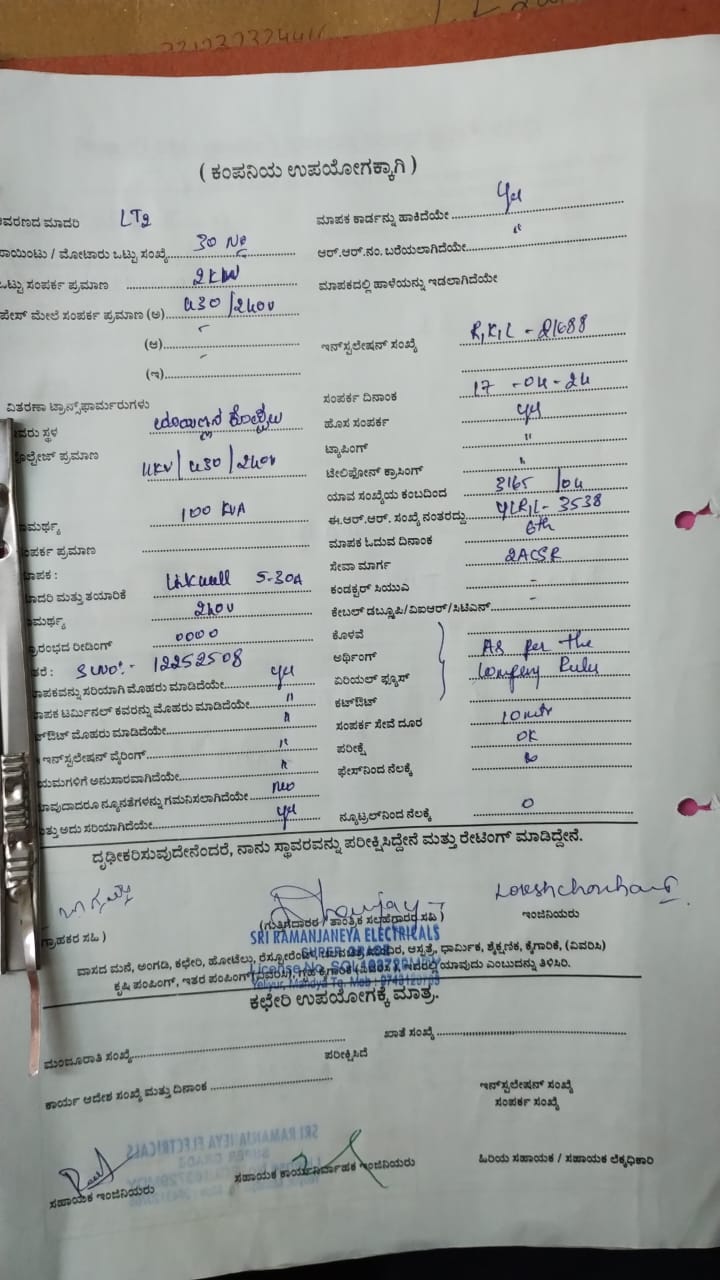 ( ಕಂಪನಿಯ ಉಪಯೋಗಕ್ಕಾಗಿ )
ವರಣದ ಮಾದರಿ LT2
ಮಾಪಕ ಕಾರ್ಡನ್ನು ಹಾಕಿದೆಯೇ yes
ಾಯಿಂಟು / ಮೋಟಾರು ಒಟ್ಟು ಸಂಖ್ಯೆ 30
ಆರ್.ಆರ್.ನಂ. ಬರೆಯಲಾಗಿದೆಯೇ "
ಒಟ್ಟು ಸಂಪರ್ಕ ಪ್ರಮಾಣ 2KW
ಮಾಪಕದಲ್ಲಿ ಹಾಳೆಯನ್ನು ಇಡಲಾಗಿದೆಯೇ
ಪೇಸ್ ಮೇಲೆ ಸಂಪರ್ಕ ಪ್ರಮಾಣ (ಅ) 430/240V
(ಆ) -
ಇನ್‌ಸ್ಟಲೇಷನ್ ಸಂಖ್ಯೆ R,K,L - 21688
(ಇ)
ವಿತರಣಾ ಟ್ರಾನ್ಸ್‌ಫಾರ್ಮರುಗಳು
ಸಂಪರ್ಕ ದಿನಾಂಕ 17-04-24
ವರು ಸ್ಥಳ
ಹೊಸ ಸಂಪರ್ಕ yes
ೋಲ್ಟೇಜ್ ಪ್ರಮಾಣ 11KV/430/240V
ಟ್ಯಾಪಿಂಗ್ "
ಟೆಲಿಫೋನ್ ಕ್ರಾಸಿಂಗ್ "
ಯಾವ ಸಂಖ್ಯೆಯ ಕಂಬದಿಂದ 3165 /04
ಾಮರ್ಥ್ಯ 100 KVA
ಈ.ಆರ್.ಆರ್. ಸಂಖ್ಯೆ ನಂತರದ್ದು YLR,L- 3538
ಂಪರ್ಕ ಪ್ರಮಾಣ
ಮಾಪಕ ಓದುವ ದಿನಾಂಕ 6th
ಾಪಕ :
ಸೇವಾ ಮಾರ್ಗ 2ACSR
ಾದರಿ ಮತ್ತು ತಯಾರಿಕೆ 5-30A
ಕಂಡಕ್ಟರ್ ಸಿಯುಎ -
ಾಮರ್ಥ್ಯ 240V
ಕೇಬಲ್ ಡಬ್ಲ್ಯೂಪಿ/ವಿಐಆರ್/ಸಿಟಿಎನ್ -
್ರಾರಂಭದ ರೀಡಿಂಗ್ 0000
ಕೊಳವೆ
ತರೆ : Slno:- 12252508
ಅರ್ಥಿಂಗ್ As per the
ಾಪಕವನ್ನು ಸರಿಯಾಗಿ ಮೊಹರು ಮಾಡಿದೆಯೇ yes
ಏರಿಯಲ್ ಫ್ಯೂಸ್ Company Rules
ಾಪಕ ಟರ್ಮಿನಲ್ ಕವರನ್ನು ಮೊಹರು ಮಾಡಿದೆಯೇ "
ಕಟ್‌ಔಟ್
ಟ್‌ಔಟ್ ಮೊಹರು ಮಾಡಿದೆಯೇ "
ಸಂಪರ್ಕ ಸೇವೆ ದೂರ 10mtr
ಇನ್‌ಸ್ಟಲೇಷನ್ ವೈರಿಂಗ್ "
ಪರೀಕ್ಷೆ OK
ಯಮಗಳಿಗೆ ಅನುಸಾರವಾಗಿದೆಯೇ "
ಫೇಸ್‌ನಿಂದ ನೆಲಕ್ಕೆ
ಾವುದಾದರೂ ನ್ಯೂನತೆಗಳನ್ನು ಗಮನಿಸಲಾಗಿದೆಯೇ No
ತ್ತು ಅದು ಸರಿಯಾಗಿದೆಯೇ yes
ನ್ಯೂಟ್ರಲ್‌ನಿಂದ ನೆಲಕ್ಕೆ 0
ದೃಢೀಕರಿಸುವುದೇನೆಂದರೆ, ನಾನು ಸ್ಥಾವರವನ್ನು ಪರೀಕ್ಷಿಸಿದ್ದೇನೆ ಮತ್ತು ರೇಟಿಂಗ್ ಮಾಡಿದ್ದೇನೆ.
್ರಾಹಕರ ಸಹಿ )
(ಗುತ್ತಿಗೆದಾರರ / ತಾಂತ್ರಿಕ ಸಲಹೆಗಾರರ ಸಹಿ )
ಇಂಜಿನಿಯರು
SRI RAMANJANEYA ELECTRICALS
ವಾಸದ ಮನೆ, ಅಂಗಡಿ, ಕಛೇರಿ, ಹೋಟೆಲು, ಆಸ್ಪತ್ರೆ, ಧಾರ್ಮಿಕ, ಶೈಕ್ಷಣಿಕ, ಕೈಗಾರಿಕೆ, (ವಿವರಿಸಿ)
ಕೃಷಿ ಪಂಪಿಂಗ್, ಇತರ ಪಂಪಿಂಗ್ ಇದರಲ್ಲಿ ಯಾವುದು ಎಂಬುದನ್ನು ತಿಳಿಸಿರಿ.
ಕಛೇರಿ ಉಪಯೋಗಕ್ಕೆ ಮಾತ್ರ.
ಮಂಜೂರಾತಿ ಸಂಖ್ಯೆ
ಖಾತೆ ಸಂಖ್ಯೆ
ಪರೀಕ್ಷಿಸಿದೆ
ಕಾರ್ಯ ಆದೇಶ ಸಂಖ್ಯೆ ಮತ್ತು ದಿನಾಂಕ
ಇನ್‌ಸ್ಟಲೇಷನ್ ಸಂಖ್ಯೆ
ಸಂಪರ್ಕ ಸಂಖ್ಯೆ
ಸಹಾಯಕ ಇಂಜಿನಿಯರು
ಸಹಾಯಕ ಕಾರ್ಯನಿರ್ವಾಹಕ ಇಂಜಿನಿಯರು
ಹಿರಿಯ ಸಹಾಯಕ / ಸಹಾಯಕ ಲೆಕ್ಕಾಧಿಕಾರಿ